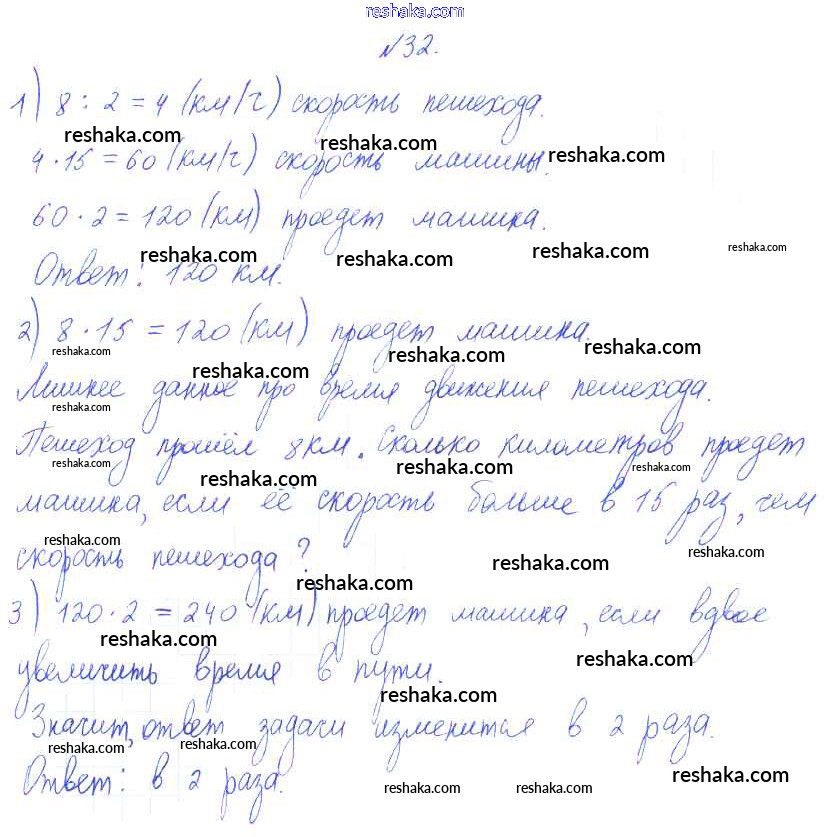 reshaka.com
№32.
1) 8 : 2 = 4 (км/ч) скорость пешехода.
reshaka.com reshaka.com reshaka.com
4 · 15 = 60 (км/ч) скорость машины.
60 · 2 = 120 (км) проедет машина.
reshaka.com reshaka.com reshaka.com reshaka.com
Ответ: 120 км.
2) 8 · 15 = 120 (км) проедет машина.
reshaka.com reshaka.com reshaka.com reshaka.com
Лишнее данное про время движения пешехода.
reshaka.com
Пешеход прошёл 8 км. Сколько километров проедет
reshaka.com reshaka.com reshaka.com reshaka.com
машина, если её скорость больше в 15 раз, чем
reshaka.com
скорость пешехода?
reshaka.com reshaka.com
3) 120 · 2 = 240 (км) проедет машина, если вдвое
reshaka.com reshaka.com
увеличить время в пути.
reshaka.com
Значит, ответ задачи изменится в 2 раза.
reshaka.com reshaka.com
Ответ: в 2 раза.
reshaka.com reshaka.com reshaka.com